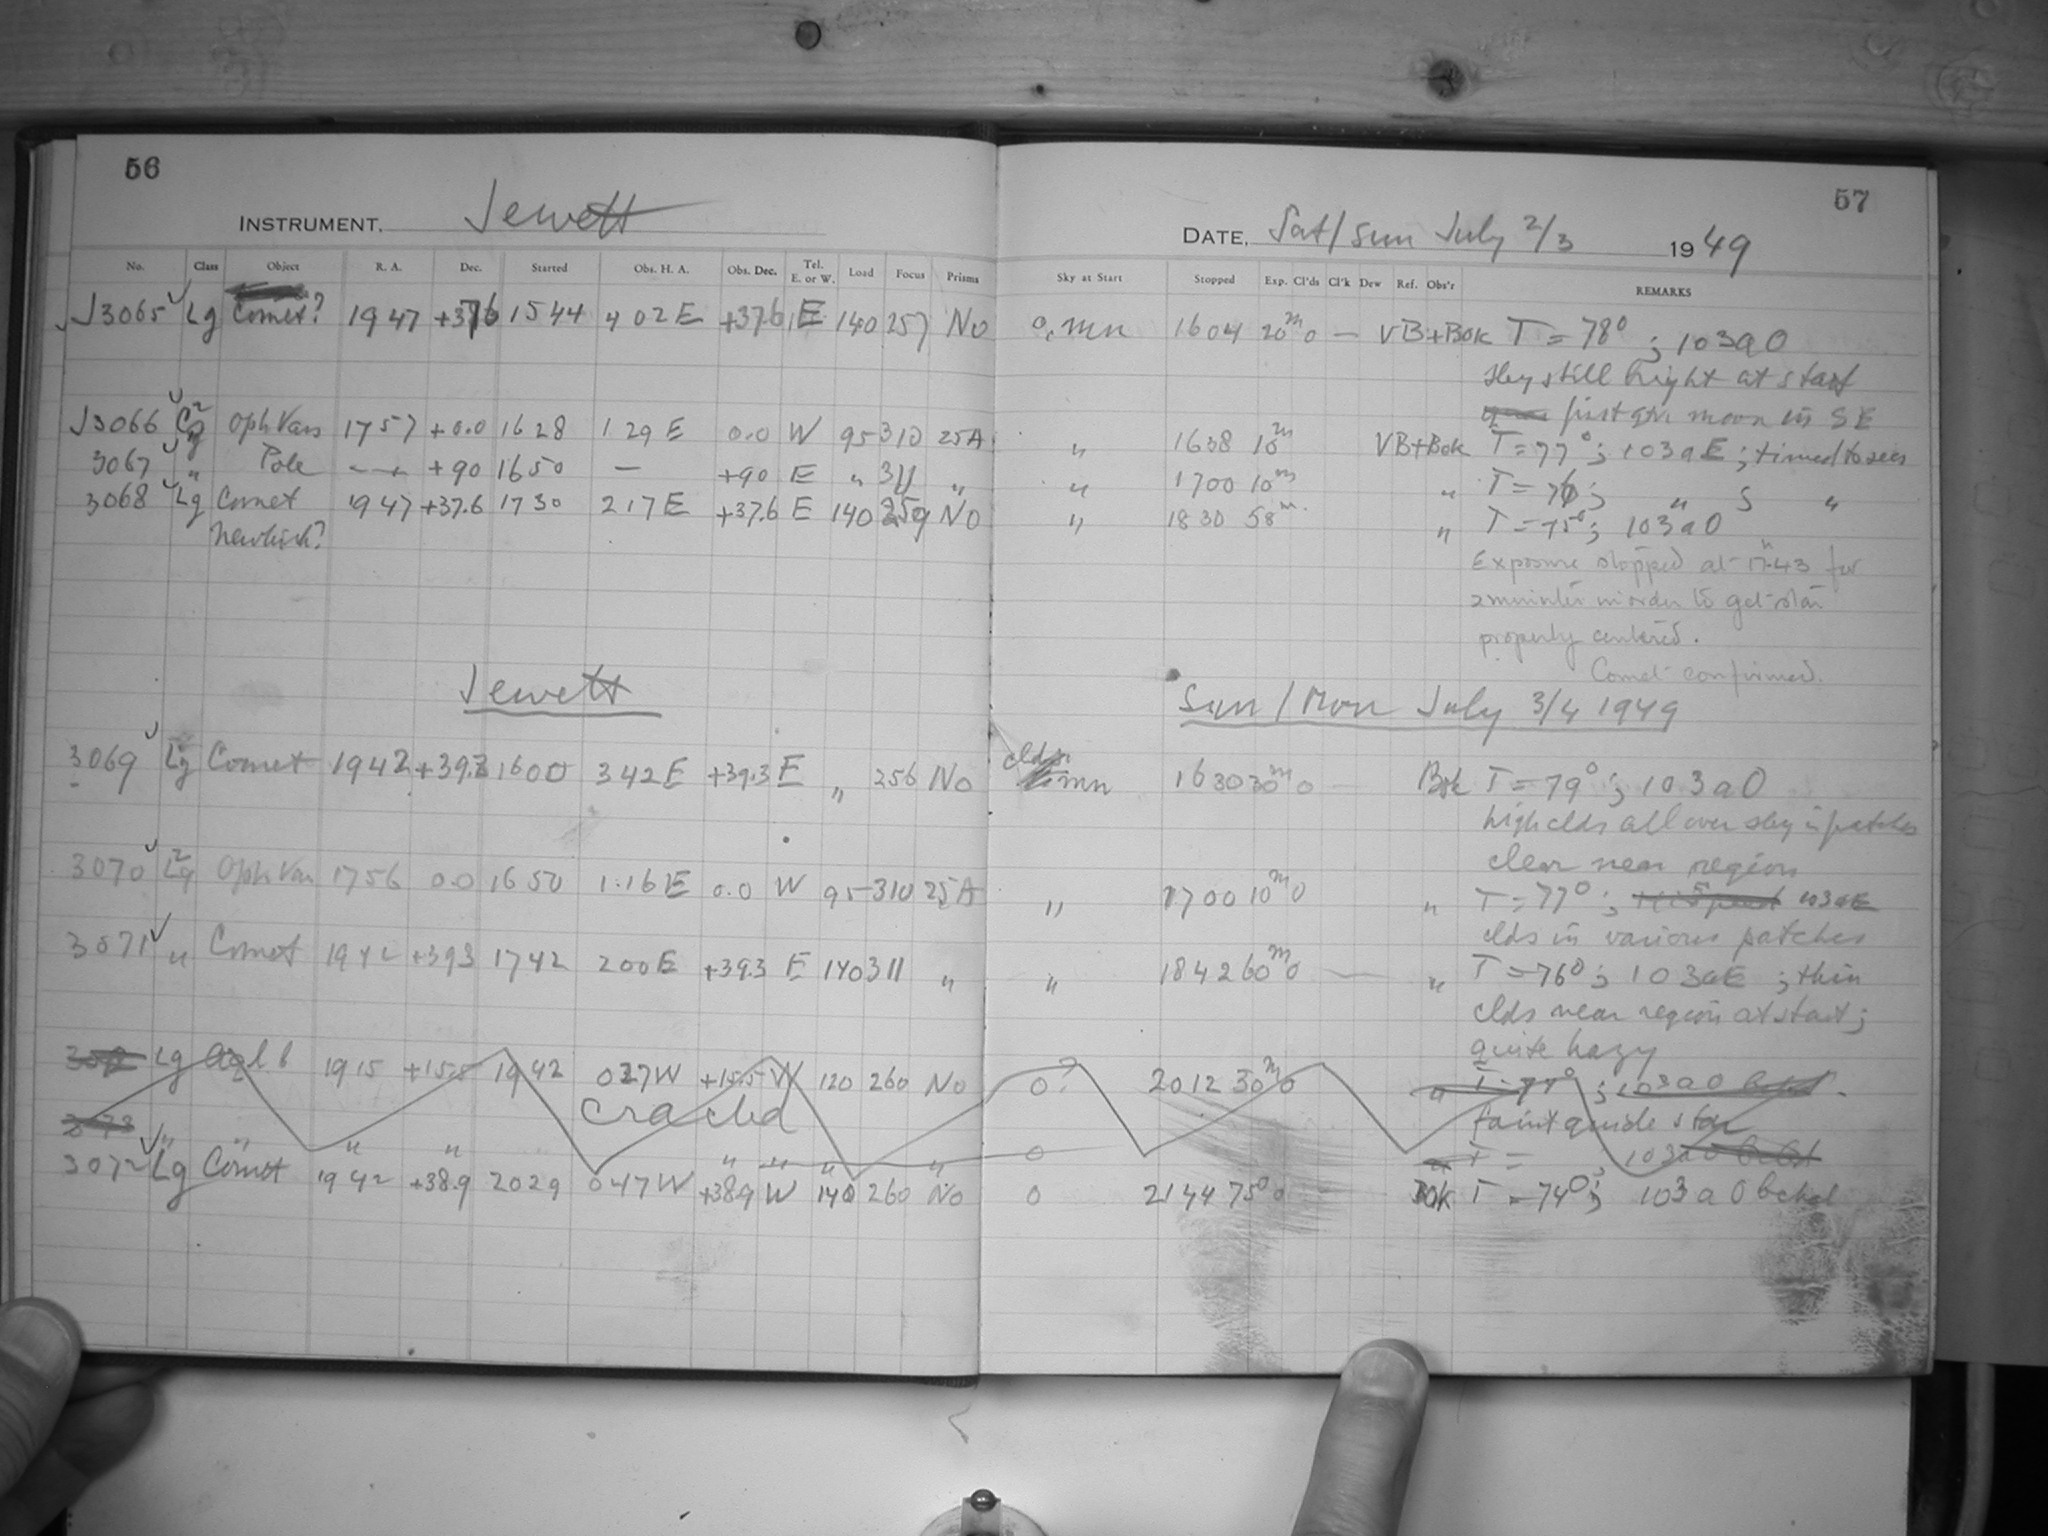 56
INSTRUMENT. Jewett
No. Class Object R. A. Dec. Started Obs. H. A. Obs. Dec. Tel. E. or W. Load Focus Prisms
J3065 Lg Comet? 1947 +37.6 1544 4 02 E +37.6 E 140 257 No
J3066 Oph Vars 1757 +0.0 1628 1 29 E 0.0 W 95 310 25A
3067 " Pole — +90 1650 — +90 E " 311 "
3068 Lg Comet 1947 +37.6 1730 2 17 E +37.6 E 140 259 No
Jewett
3069 Lg Comet 1942 +39.3 1600 3 42 E +39.3 E " 256 No
3070 Lg Oph Var 1756 0.0 1650 1.16 E 0.0 W 95 310 25A
3071 " Comet 1942 +39.3 1742 2 00 E +39.3 E 140 311 "
Lg Aql 6 1915 +15.5 1942 0 27 W +15.5 W 120 260 No
cracked
" " " " " " " "
3072 Lg Comet 1942 +38.9 2029 0 47 W +38.9 W 140 260 No
57
DATE, Sat/Sun July 2/3 1949
Sky at Start Stopped Exp. Cl'ds Cl'k Dew Ref. Obs'r REMARKS
0, mn 1604 20m 0 — VB+Bok T = 78° ; 103aO
sky still bright at start
first qtr moon in SE
" 1638 10m VB+Bok T = 77° ; 103aE ; timed to secs
" 1700 10m " T = 76 ; " S "
" 1830 58m " T = 75° ; 103aO
Exposure stopped at 17h43 for
2 minutes in order to get star
properly centered.
Comet confirmed.
Sun / Mon July 3/4 1949
clds. mn 1630 30m 0 — Bok T = 79° ; 103aO
high clds all over sky in patches
clear near region
" 1700 10m 0 " T = 77° ; 103aE
clds in various patches
" 1842 60m 0 — " T = 76° ; 103aE ; thin
clds near region at start ;
quite hazy
0? 2012 30m 0 " T = 77° ; 103aO
faint guide star
0 " T = 103aO
0 2144 75 0 Bok T = 74° ; 103aO